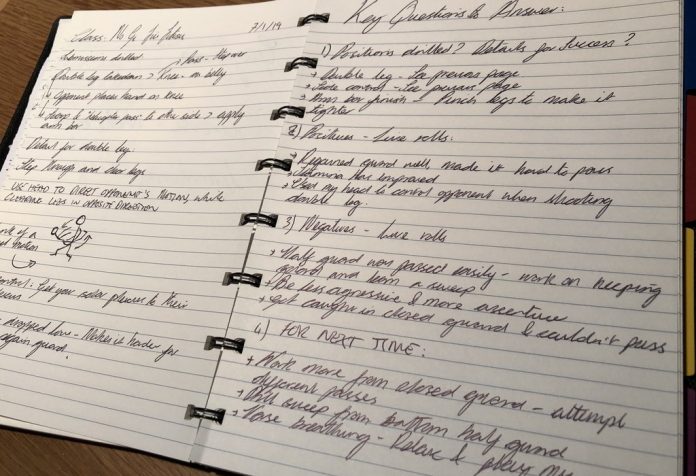 Class: No Gi
7/1/19
Submissions drilled
Double leg takedown > Knee on belly
Pass - Step over
Opponent places hand on knee
to other side > apply
arm bar
Detail for double leg
Step through and clear legs
USE HEAD TO DIRECT OPPONENT'S MOTIONS, while
LEGS IN OPPOSITE DIRECTION
of a
motion
control: Put your solar plexus to their
dropped low - Makes it harder for
guard.
Key Questions to Answer:
1) Positions drilled? Details for Success?
+ Double leg - See previous page
+ Side control - See previous page
+ Arm bar finish - Pinch legs to make it
tighter
2) Positives - Live rolls:
+ Regained guard well, made it hard to pass
+ Stamina has improved
+ Used my head to control opponent when shooting
double leg.
3) Negatives - Live rolls
+ Half guard was passed easily - work on keeping
guard and learn a sweep
+ Be less aggressive & more assertive
+ Got caught in closed guard & couldn't pass
4) FOR NEXT TIME:
+ Work more from closed guard - attempt
different passes
+ Drill sweep from bottom half guard
+ Nose breathing - Relax & play my